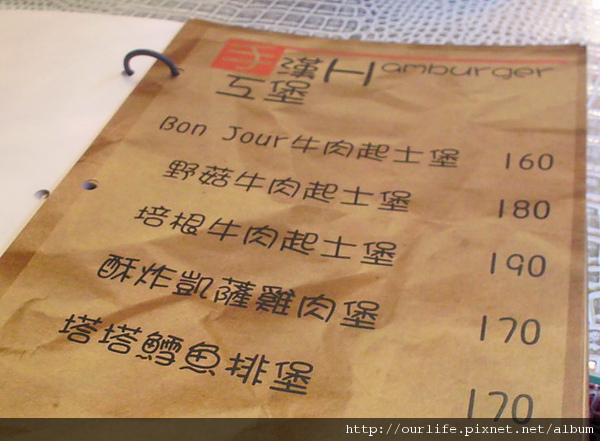 漢Hamburger
堡
Bon Jour牛肉起士堡 160
野菇牛肉起士堡 180
培根牛肉起士堡 190
酥炸凱薩雞肉堡 170
塔塔鱈魚排堡 170
http://ourlife.pixnet.net/album